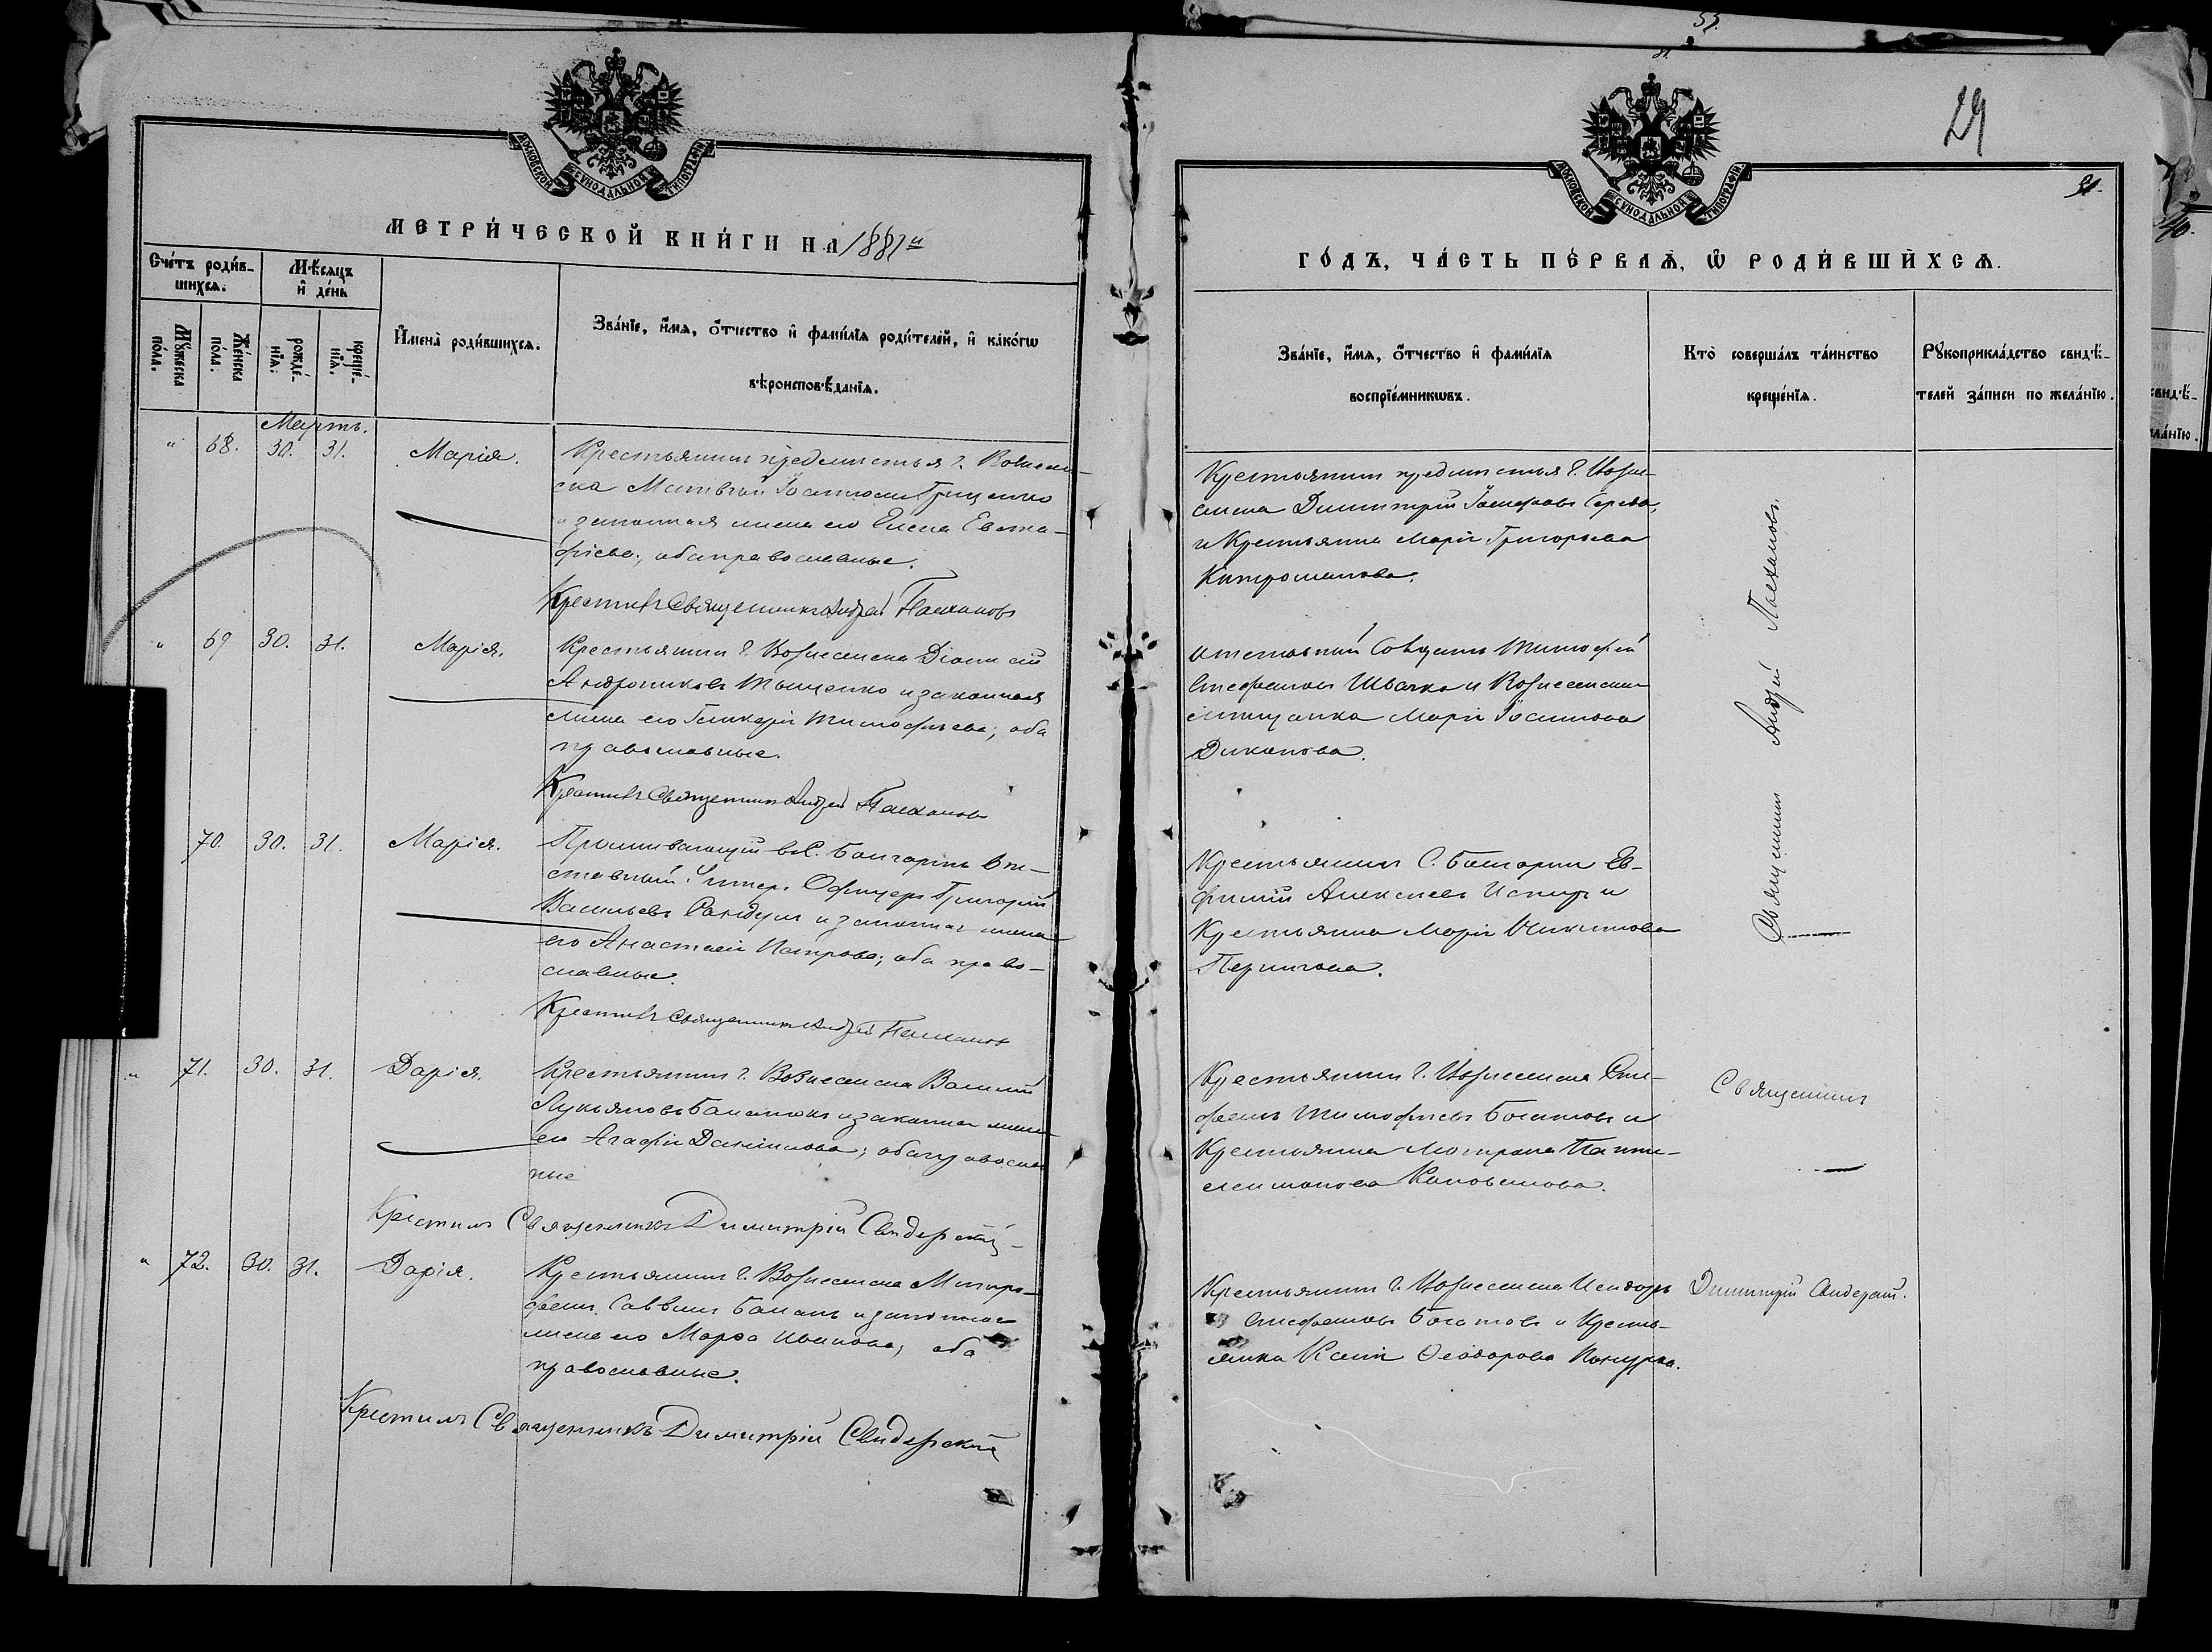 МОСКОВСКОЙ СѴНОДАЛЬНОЙ ТИПОГРАФІИ
МЕТРИ́ЧЕСКОЙ КНИ́ГИ НА 1887й
Сче́тъ роди́в-
шихсѧ.
Мѣ́сѧцъ
и҆ де́нь
Мꙋ́жеска
по́ла.
Же́нска
по́ла.
рожде́-
нїѧ.
креще́-
нїѧ.
И҆мена̀ роди́вшихсѧ.
Зва́нїе, и҆́мѧ, ѻ҆́тчество и҆ фами́лїѧ роди́телей, и҆ како́гѡ
вѣроисповѣ́данїѧ.
Мартъ.
" 68. 30. 31. Марія.
Крестьянинъ предмѣстья г. Вознесен-
ска Матвѣй Гриценко
и законная жена его Елена Евста-
фіева; оба православные.
Крестилъ Священникъ Андрей Пасхаловъ
" 69 30. 31. Марія.
Крестьянинъ г. Вознесенска Діонисій
Андрониковъ Тыщенко и законная
жена его Гликерія Тимофѣева; оба
православные.
Крестилъ Священникъ Андрей Пасхаловъ
70. 30. 31. Марія.
Проживающій въ С. Болгаркѣ От-
ставный Унтеръ Офицеръ Григорій
Васильевъ и законная жена
его Анастасія Петрова; оба право-
славные.
Крестилъ Священникъ Андрей Пасхаловъ
" 71. 30. 31. Дарія.
Крестьянинъ г. Вознесенска Василій
Лукьяновъ и законная жена
его Агафія Даніилова; оба православ
ные
Крестилъ Священникъ Димитрій Свидерскій
" 72. 30. 31. Дарія.
Крестьянинъ г. Вознесенска Митро-
фанъ Саввинъ Баланъ и законная
жена его Марѳа Иванова; оба
православные.
Крестилъ Священникъ Димитрій Свидерскій
29
МОСКОВСКОЙ СѴНОДАЛЬНОЙ ТИПОГРАФІИ
ГО́ДЪ, ЧА́СТЬ ПЕ́РВАѦ, Ѡ҆ РОДИ́ВШИХСѦ.
Зва́нїе, и҆́мѧ, ѻ҆́тчество и҆ фами́лїѧ
воспрїе́мникѡвъ.
Кто̀ соверша́лъ та́инство
креще́нїѧ.
Рꙋкоприкла́дство свидѣ́-
телей за́писи по жела́нїю.
Крестьянинъ предмѣстья г. Возне-
сенска Димитрій Іосифовъ Середа,
и Крестьянка Марія Григорьева
Отставный Солдатъ Тимофей
Стефановъ Швачка и Вознесенская
мѣщанка Марія
Диканова.
Крестьянинъ С. Болгарки Ев-
фимій Алексѣевъ и
Крестьянка Марія Никитова
Крестьянинъ г. Вознесенска Сте-
фанъ Тимофѣевъ Богатовъ и
Крестьянка Матрона Панте-
леимонова
Крестьянинъ г. Вознесенска Исидоръ
Стефановъ Богатовъ и Кресть-
янка Ксенія Ѳеодорова
Священникъ Андрей Пасхаловъ
Священникъ
Димитрій Свидерскій.